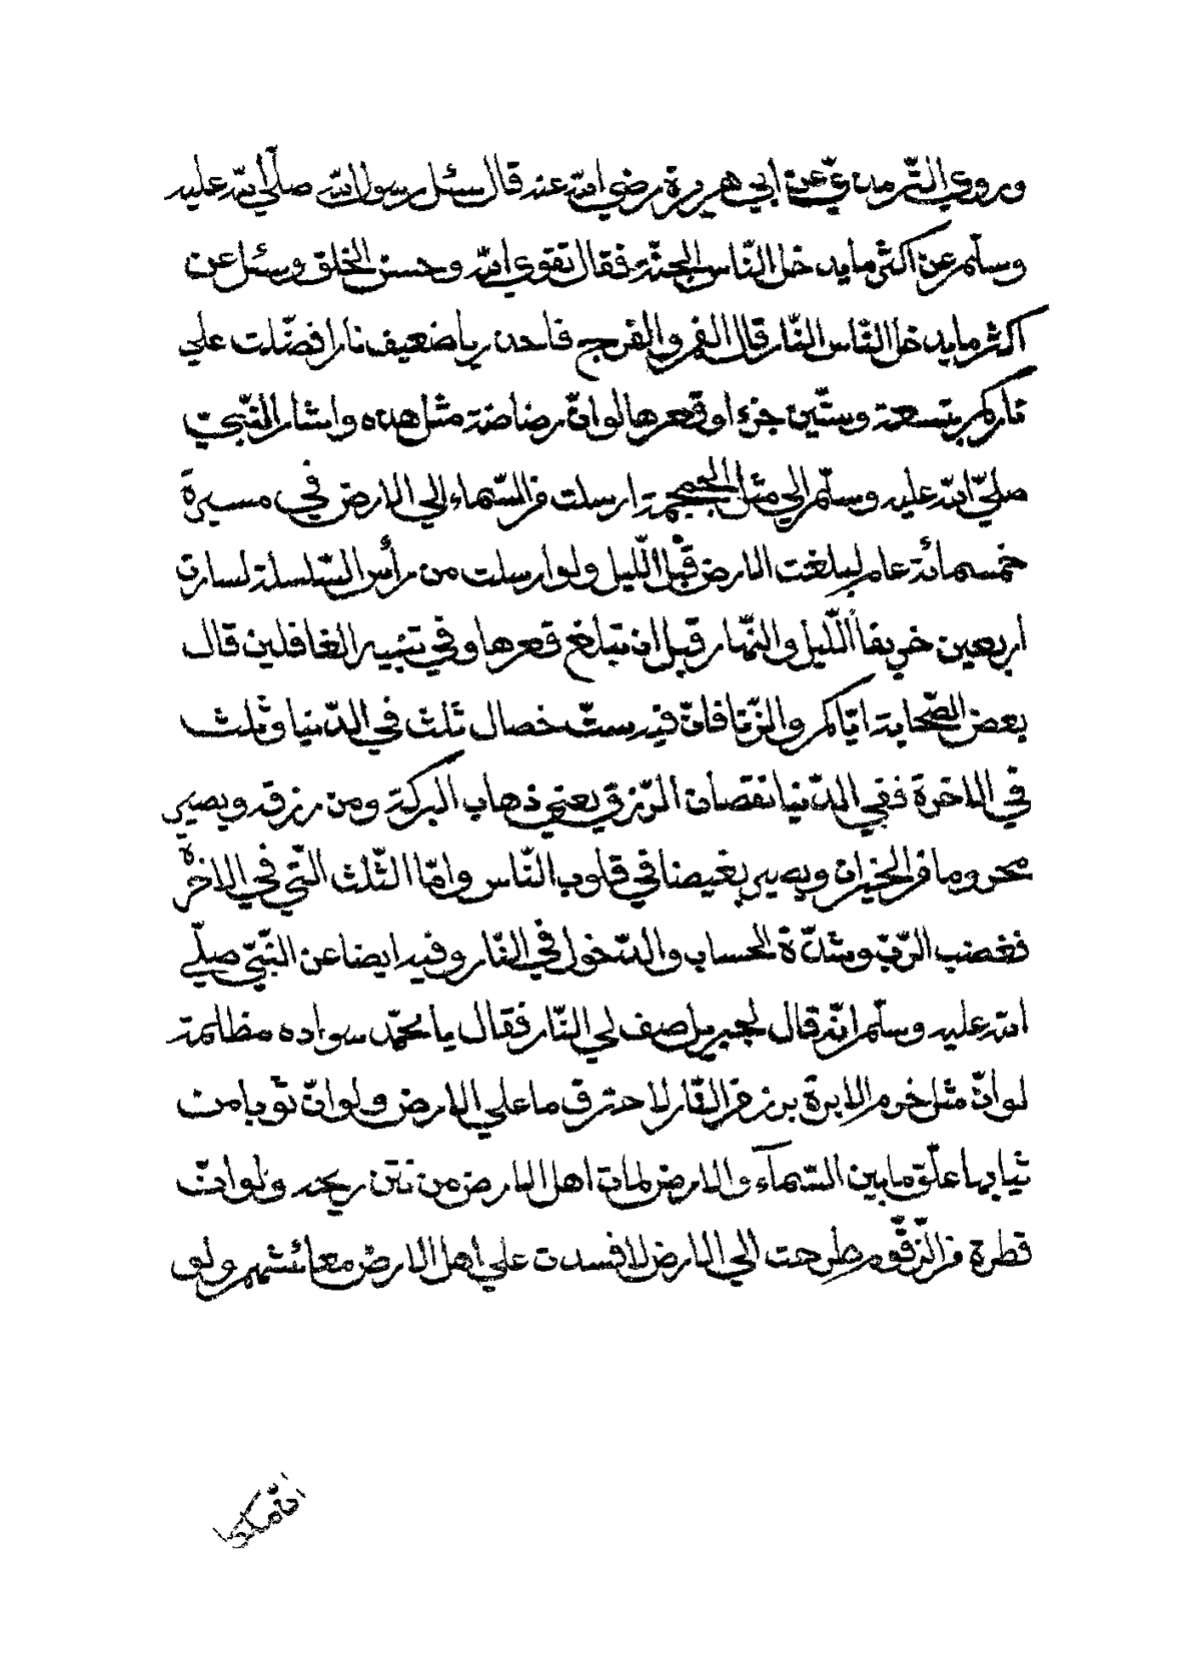 وروي الترمذي عن ابي هريرة رضي الله عنه قال سئل رسول الله صلّي الله عليه
وسلّم عن اكثر ما يدخل النّاس الجنّة فقال تقوي الله وحسن الخلق وسئل عن
اكثر ما يدخل النّاس النّار قال الفم والفرج فاحذر يا ضعيف نارا فضّلت علي
ناركم بتسعة وستّين جزء او قعرها لو انّ رضاضة مثل هذه واشار النّبيّ
صلّي الله عليه وسلّم الي مثل الجمجمة ارسلت من السّماء الي الارض في مسيرة
خمسمائة عام لبلغت الارض قبل اللّيل ولو ارسلت من رأس السّلسلة لسارت
اربعين خريفا اللّيل والنّهار قبل ان تبلغ قعرها وفي تنبيه الغافلين قال
بعض الصّحابة ايّاكم والزّنا فانّ فيه ستّ خصال ثلث في الدّنيا وثلث
في الاخرة ففي الدّنيا نقصان الرّزق يعني ذهاب البركة ومن رزقه ويصير
محروما من الخيرات ويصير بغيضا في قلوب النّاس وامّا الثّلث الّتي في الاخرة
فغضب الرّبّ وشدّة الحساب والدّخول في النّار وفيه ايضا عن النّبيّ صلّي
الله عليه وسلّم انّه قال لجبريل صف لي النّار فقال يا محمّد سواده مظلمة
لو انّ مثل خرم الابرة برز من النّار لاحترق ما علي الارض ولو انّ ثوبا من
ثيابها علّق ما بين السّمآء والارض لمات اهل الارض من نتن ريحه ولو انّ
قطرة من الزّقّوم طرحت الي الارض لافسدت علي اهل الارض معائشهم ولو